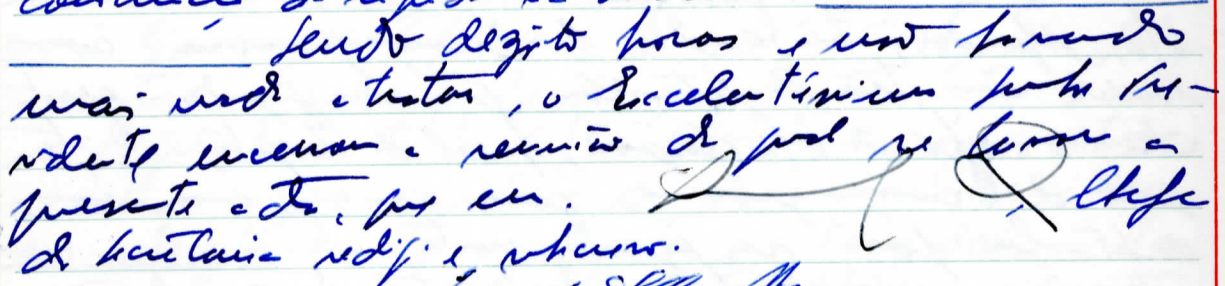 Sendo dezoito horas e não havendo
mais nada a tratar, o Excelentíssimo Senhor Presi-
dente encerrou a reunião da qual se lavrou a
presente acta, que eu, , Chefe
de Secretaria redigi e subscrevo.